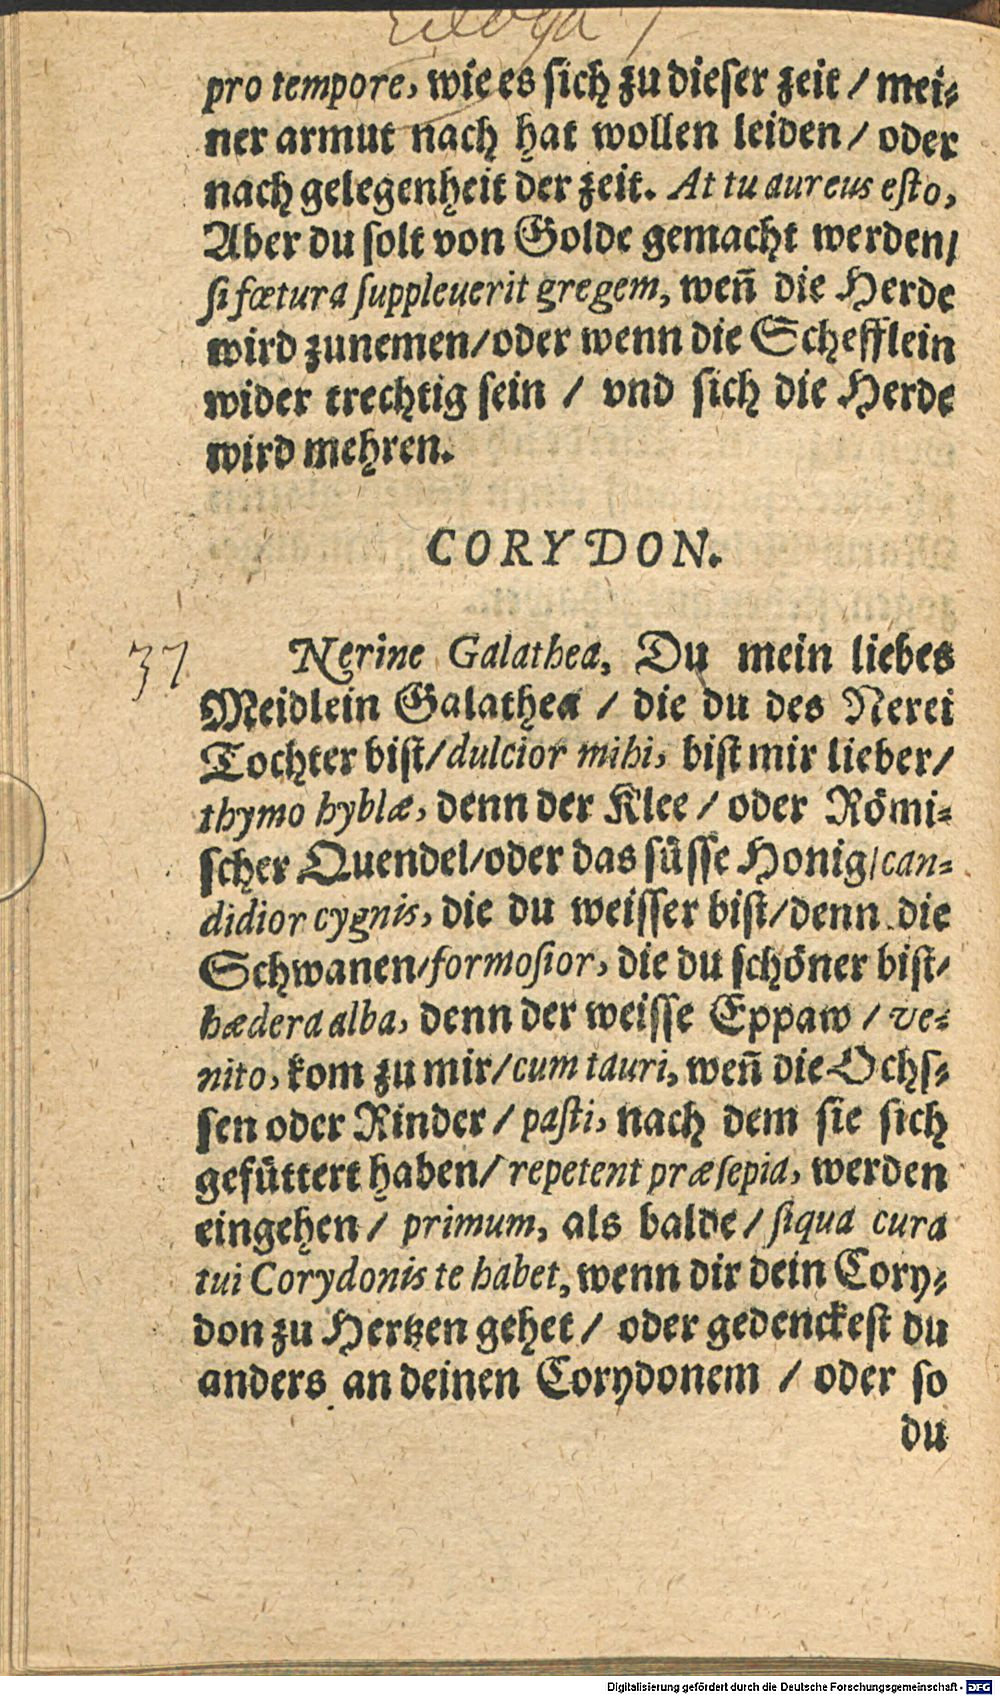 Ecloga 7
pro tempore, wie es sich zu dieser zeit / mei⸗
ner armut nach hat wollen leiden / oder
nach gelegenheit der zeit. At tu aureus eſto,
Aber du ſolt von Golde gemacht werden /
ſi fœtura ſuppleuerit gregem, weñ die Herde
wird zunemen / oder wenn die Schefflein
wider trechtig ſein / vnd ſich die Herde
wird mehren.
CORYDON.
37 Nerine Galathea, Du mein liebes
Meidlein Galathea / die du des Nerei
Tochter biſt / dulcior mihi, biſt mir lieber /
thymo hyblæ, denn der Klee / oder Römi⸗
ſcher Quendel / oder das ſüſſe Honig / can⸗
didior cygnis, die du weiſſer biſt / denn die
Schwanen / formoſior, die du ſchöner biſt /
hædera alba, denn der weiſſe Eppaw / ve⸗
nito, kom zu mir / cum tauri, weñ die Ochſ⸗
ſen oder Rinder / paſti, nach dem ſie ſich
gefüttert haben / repetent præſepia, werden
eingehen / primum, als balde / ſiqua cura
tui Corydonis te habet, wenn dir dein Cory⸗
don zu Hertzen gehet / oder gedenckeſt du
anders an deinen Corydonem / oder ſo
du
Digitalisierung gefördert durch die Deutsche Forschungsgemeinschaft - DFG